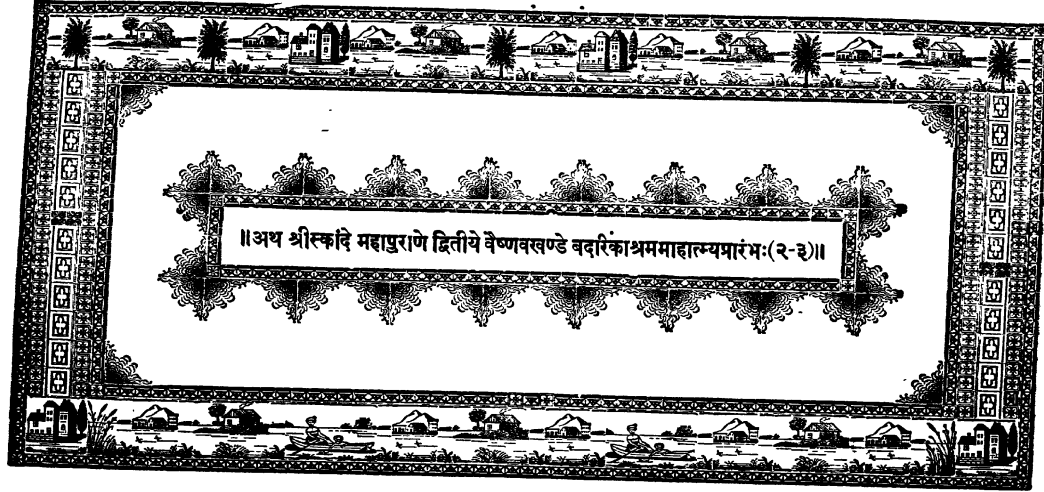 ॥अथ श्रीस्कांदे महापुराणे द्वितीये वैष्णवखण्डे बदरिकाश्रममाहात्म्यप्रारंभः(२-३)॥